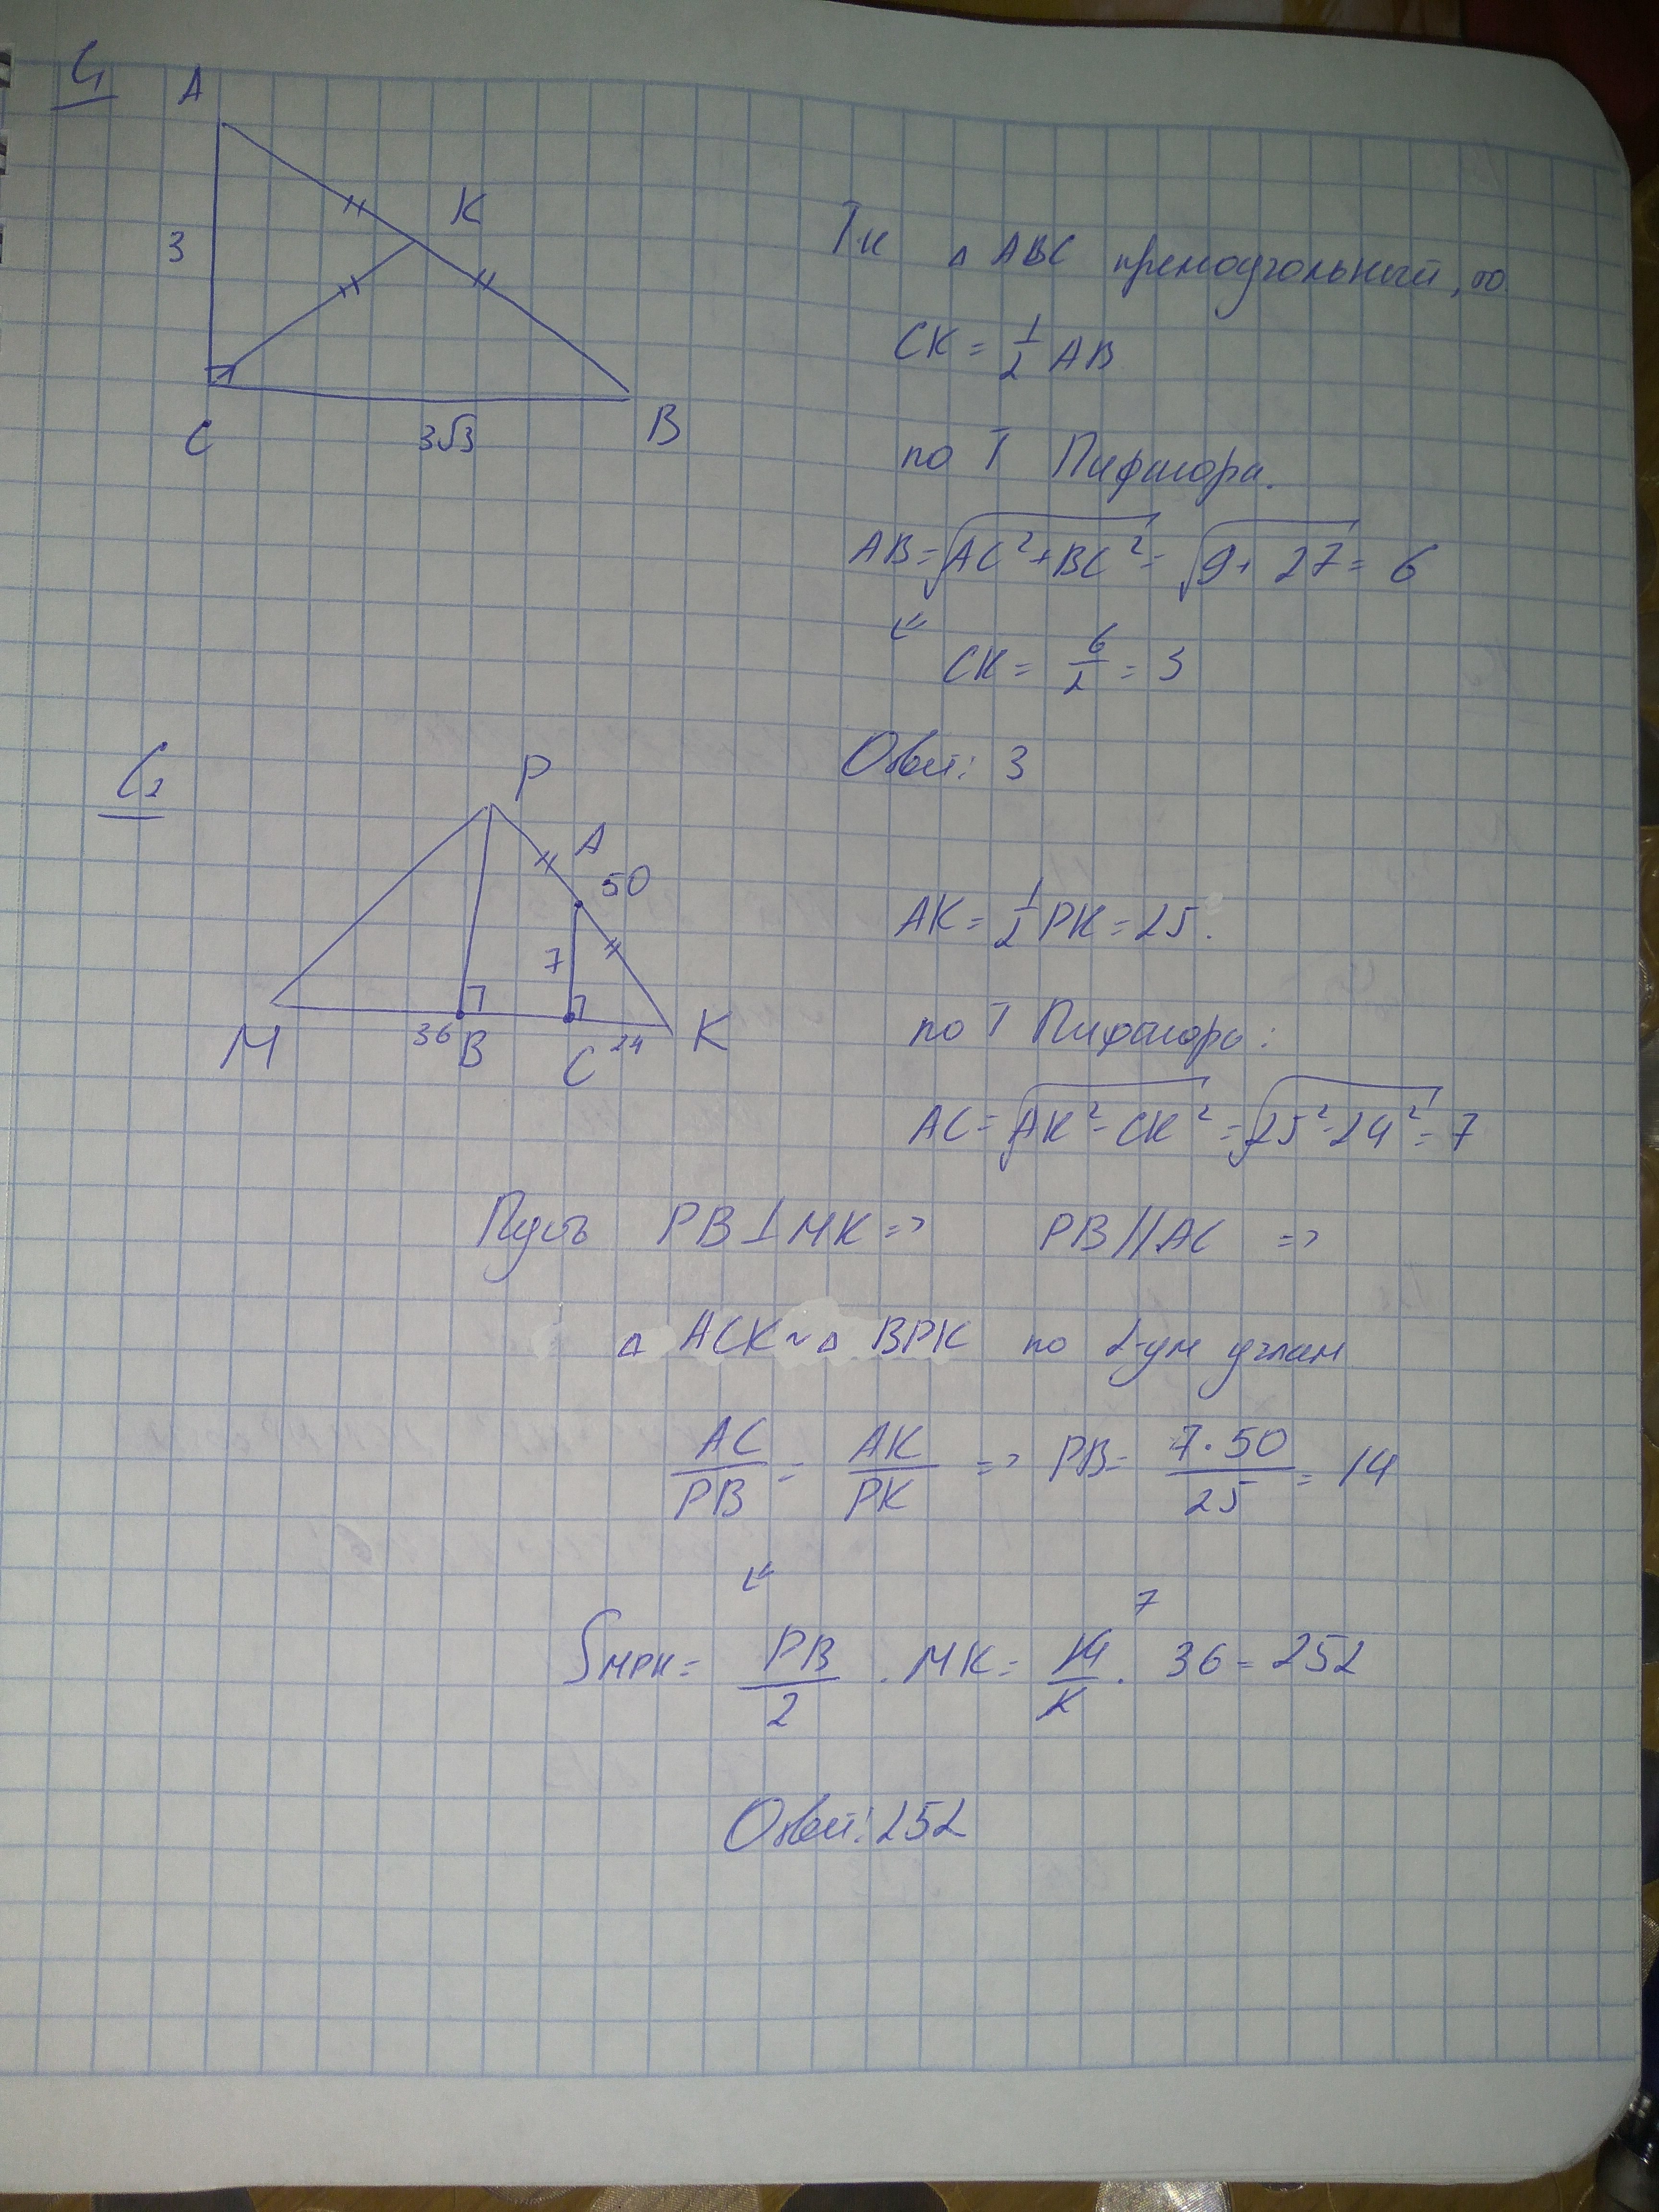 C1
A
K
3
C
3√3
B
Тк △ ABC прямоугольный, то
CK = 1/2 AB
по Т Пифагора.
AB = √(AC² + BC²) = √(9 + 27) = 6
CK = 6/2 = 3
Ответ: 3
C2
P
A
50
7
M
36
B
C
24
K
AK = 1/2 PK = 25.
по Т Пифагора:
AC = √(AK² - CK²) = √(25² - 24²) = 7
Пусть PB ⊥ MK => PB // AC =>
△ ACK ~ △ BPK по 2-ум углам
AC/PB = AK/PK => PB = 7·50/25 = 14
7
SMPK = PB/2 · MK = 14/2 · 36 = 252
Ответ: 252